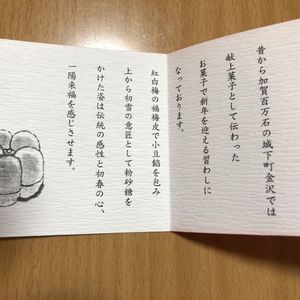 昔から加賀百万石の城下町金沢では
献上菓子として伝わった
お菓子で新年を迎える習わしに
なっております。
紅白梅の福梅皮で小豆餡を包み
上から初雪の意匠として粉砂糖を
かけた姿は伝統の感性と初春の心、
一陽来福を感じさせます。